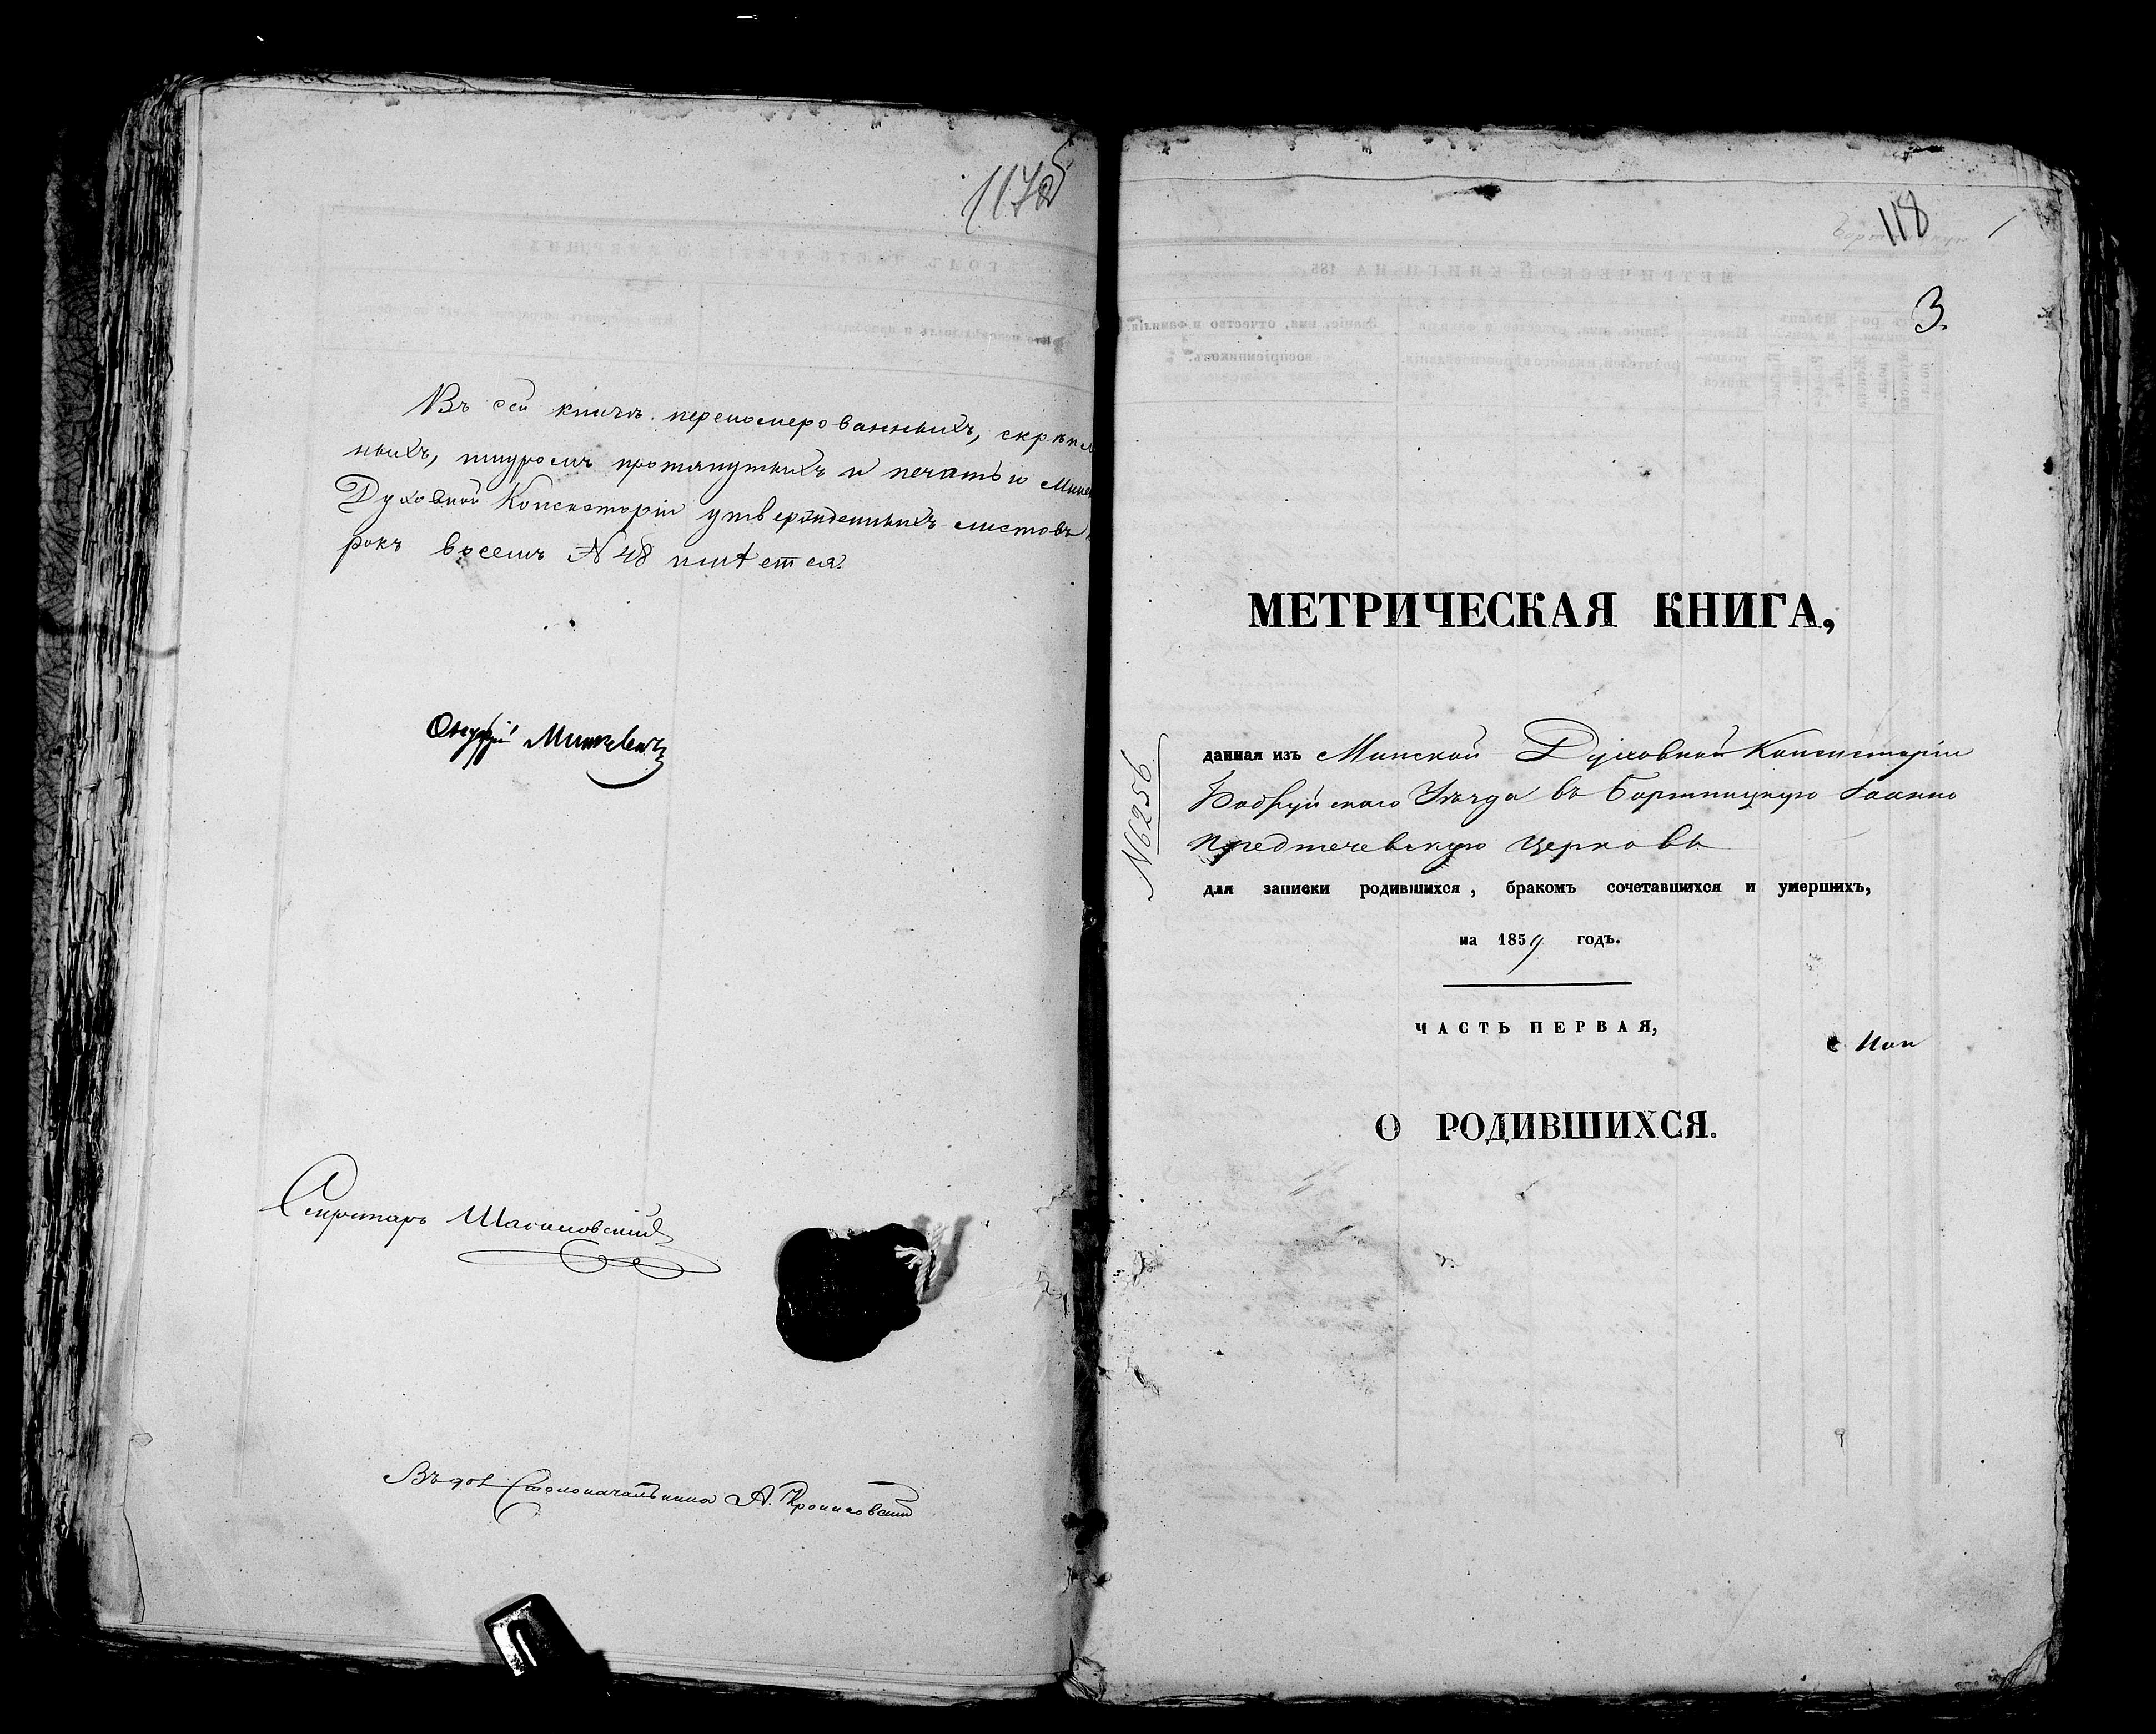 117об
Въ сей книгѣ перономерованныхъ, скрѣпле
нныхъ, шнуромъ протянутыхъ и печатью Минс
Духовной Консисторіи утвержденныхъ листовъ
рокъ восемь N 48 имѣется.
Онуфрій Минкевичъ
Секретарь
Въ дол Столоначальника А.
118
3.
МЕТРИЧЕСКАЯ КНИГА,
N 6256
данная изъ Минской Духовной Консисторіи
Бобруйскаго Уѣзда въ Бортницкую Іоанно
предтечевскую церковь
для записки родившихся, бракомъ сочетавшихся и умершихъ,
на 1859 годъ.
ЧАСТЬ ПЕРВАЯ,
О РОДИВШИХСЯ.